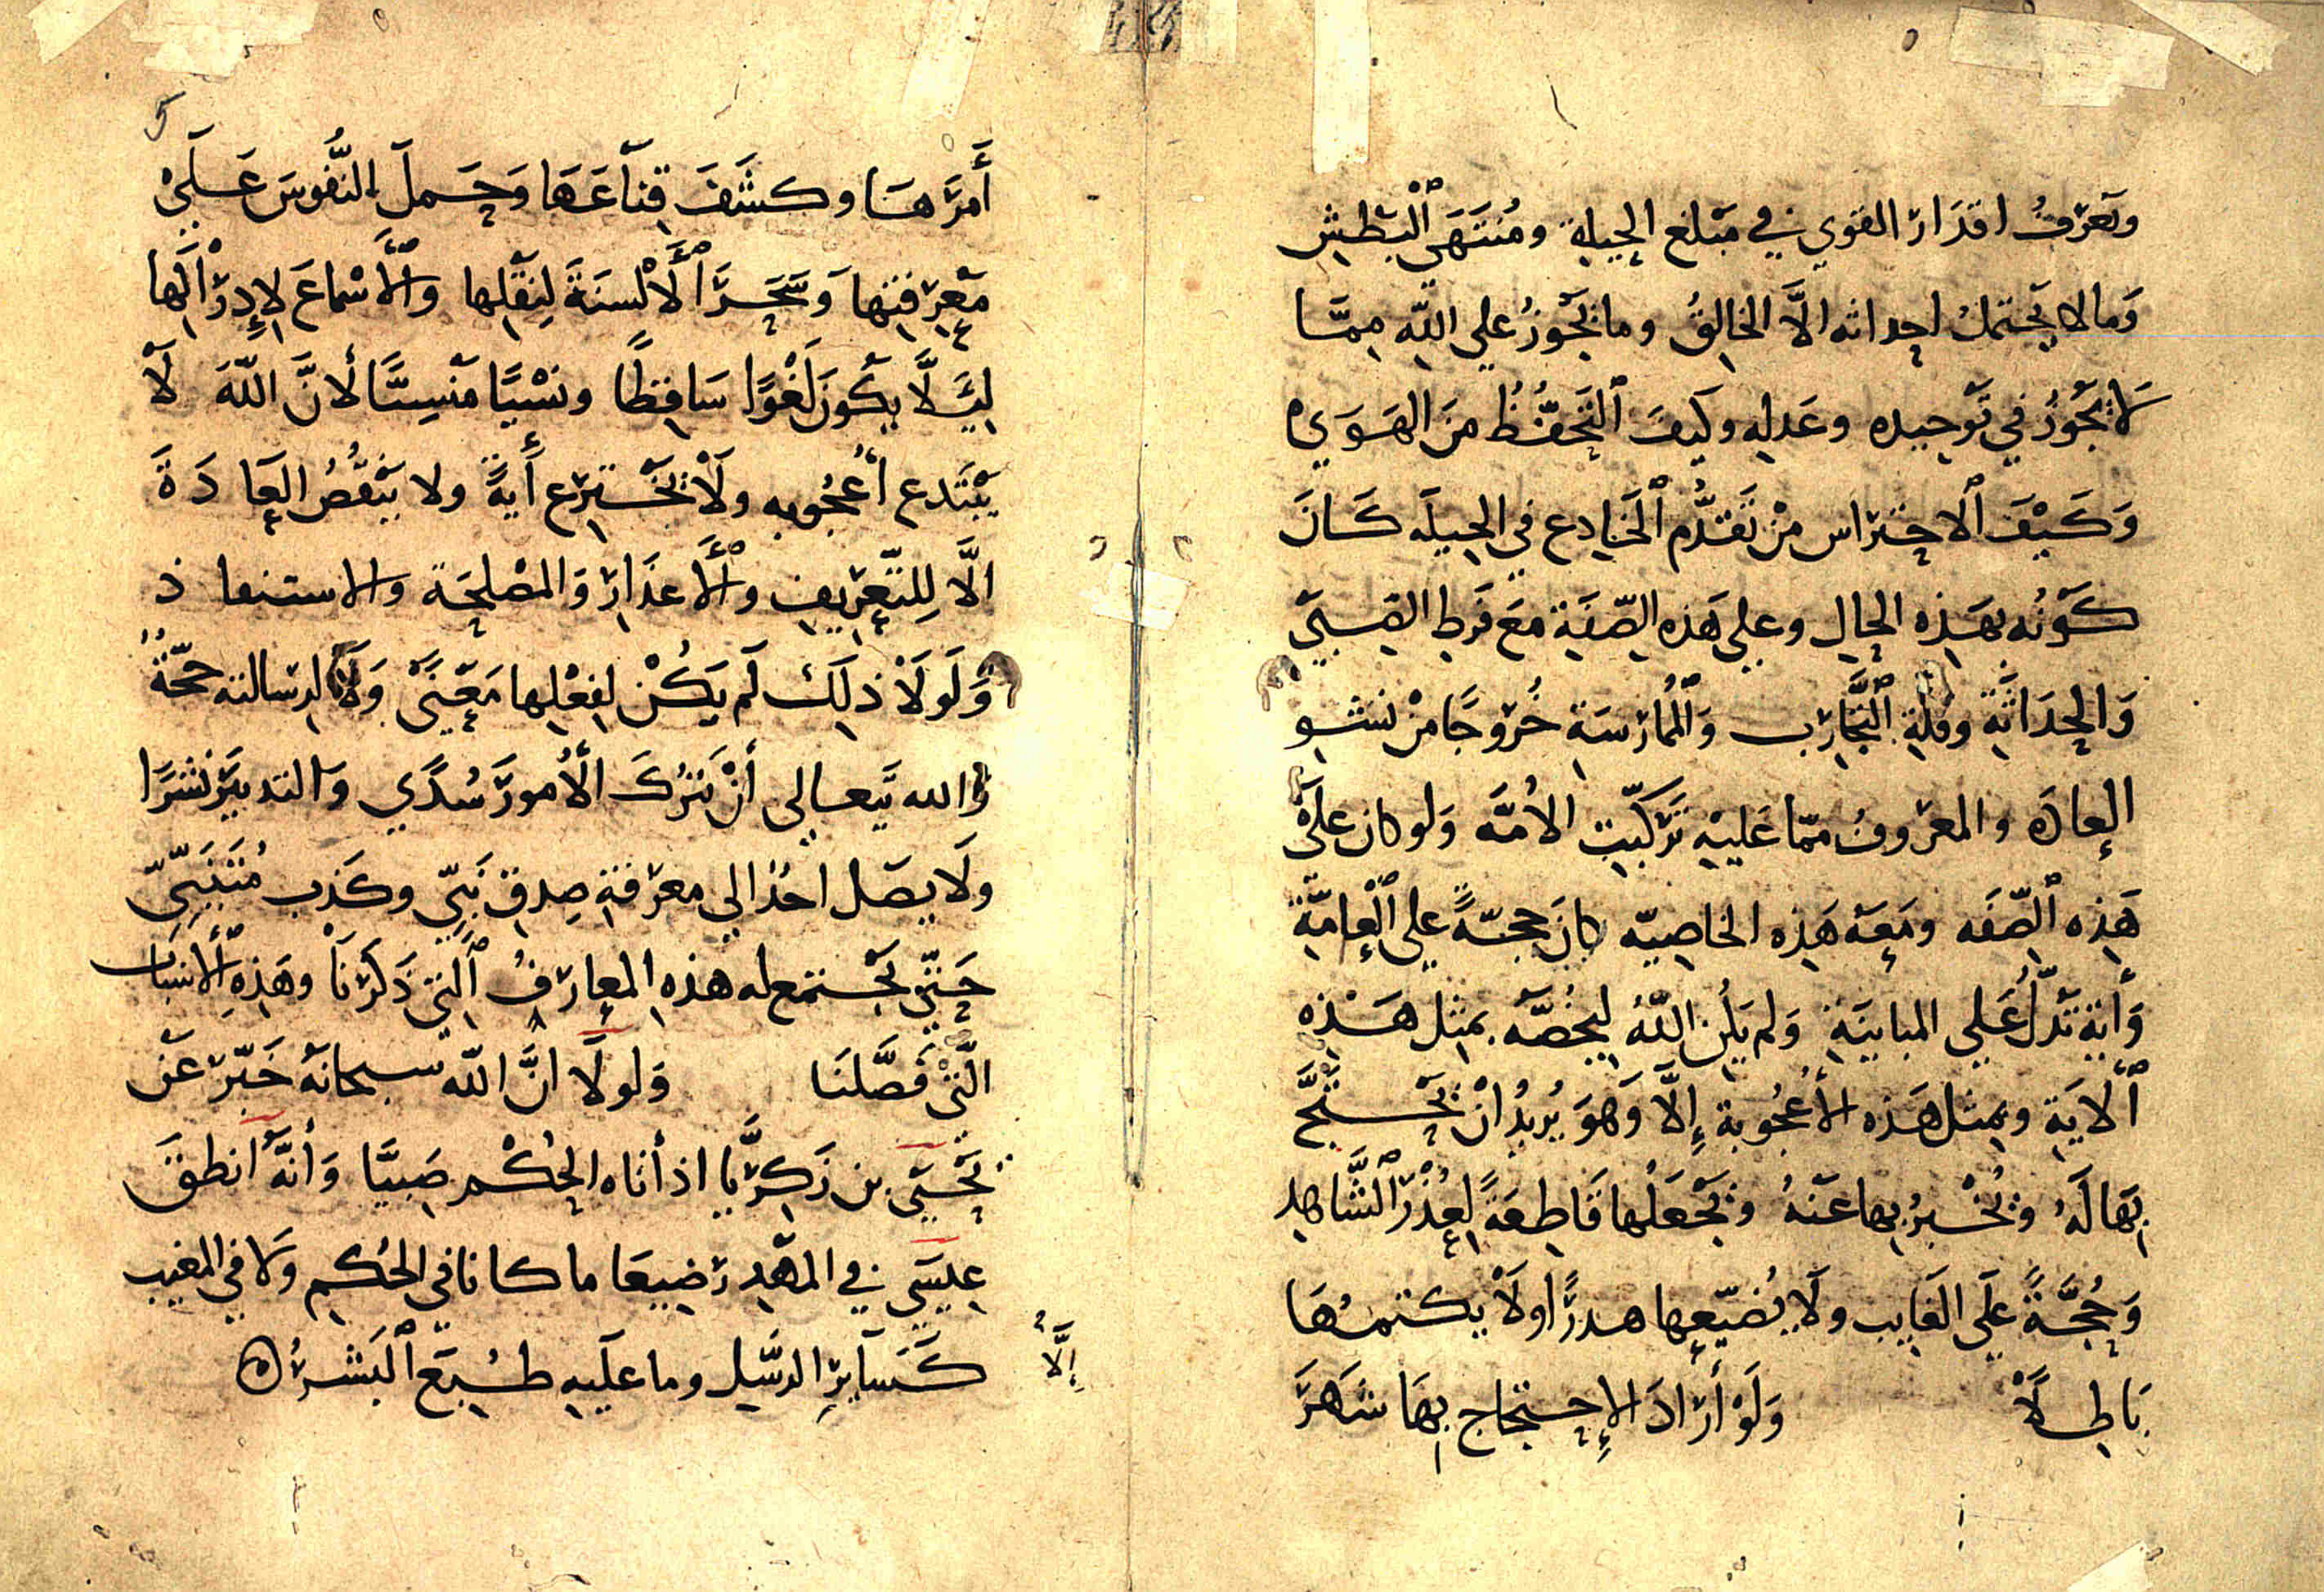 وتعرف اقدار القوي في مبلغ الحيلة ومُنتَهَى ٱلبَطْشِ
وَمالا يحتمل احداثه الَّا الخالِقُ وما يَجُوزُ علي اللّه مِمَّا
لا يَجُوزُ في تَوحيده وعَدلِه وكيفَ ٱلتَحَفُّظُ مِنَ الهَوَي
وَكَيْفَ ٱلاحتراس مِنْ تَقَدُّم ٱلخَادِع في الحِيلَه كَانَ
كَوْنُه بهَذِه الحالِ وعلي هَذِه الصّفَة مَعَ فَرط الصِبَي
وَالحَدَاثَةِ وقلّةِ ٱلتَّجَارِب وَٱلمُمَارَسَة خُرُوجًا مِنْ نشو
العادَه والمعرُوف ممّا عَليْهِ تَركَيب الأمَّه وَلو كان عَلَى
هَذِه ٱلصِّفَه ومَعَهُ هَذِه الخاصِيّه كَانَ حجّةً علي ٱلعامَّة
وَأيَة تَدُلُّ عَلي المبايَنَةِ وَلم يَكُنِ اللّهُ لِيَخُصَّهُ بمِثل هَذِه
ٱلايَةِ وبمثل هَذه الأعْجُوبة إِلَّا وَهوَ يُريدُ انْ يَحْتَجَّ
بِهَا لَهُ ويُخْبِرُ بِها عَنْهُ ويَجْعَلُها قَاطِعَةً لِعُذْرَ ٱلشَّاهِدِ
وَحُجَّةً عَلَى الغَايِب ولَا يُضَيّعِها هدرًا ولَا يكتمُهَا
بَاطِلًا وَلَوْ أرَادَ الإِحتجاج بِهَا شَهَرَ
أَمرَهَا وكَشَفَ قِنَاعَهَا وَحَمَلَ النُّفُوسَ عَلَى
مَعْرِفتِها وَسَخَّرَ ٱلأَلسنَةَ لِنَقْلِها وَٱلأَسْماعَ لإِدرَاكِها
لِيَلَّا يكُونَ لَغْوًا سَاقِطًا ونَسْيًا مَنْسِيًّا لأنَّ اللّهَ لَا
يَبْتَدع أعْجُوبه ولَا يَخْتَرِع أَيَةً ولا يَنْقُضُ العَادَةَ
الَّا لِلتَّعْريفِ وٱلأَعذَار وَالمصْلحَة والاستنقاذ
وَلَولَا ذلِكَ لَم يَكُنْ لِفِعْلِها مَعْنَى وَلَا لِرسَالته حُجَّةٌ
وَالله تَعالي أنْ يَترُكَ الأُمورَ سُدًي وَالتدبيرَ نَشَرًا
ولَا يصل احدٌ الي معرفَةِ صِدقِ نَبيّ وكَذِب مُتَنَبِّيٍّ
حَتَّى يَجتمع له هذه المعارفُ ٱلَتي ذَكَرْنَا وهَذِهِ ٱلأَسْبَاب
الَّتي فَصَّلنَا وَلولَا انَّ اللّه سبحانَهُ خَبَّرَ عَنْ
يَحْيَى بن زَكَرِيَّا اذ أتاه الحُكْم صَبِيًّا وَأنَّهُ انطقَ
عِيسَى في المهْدِ رَضِيعَا ما كانا في الحُكمِ ولَا في المغيب
إِلَّا
كَسَايِر الرسُلِ وما عليه طُبِعَ ٱلبَشَرُ ه